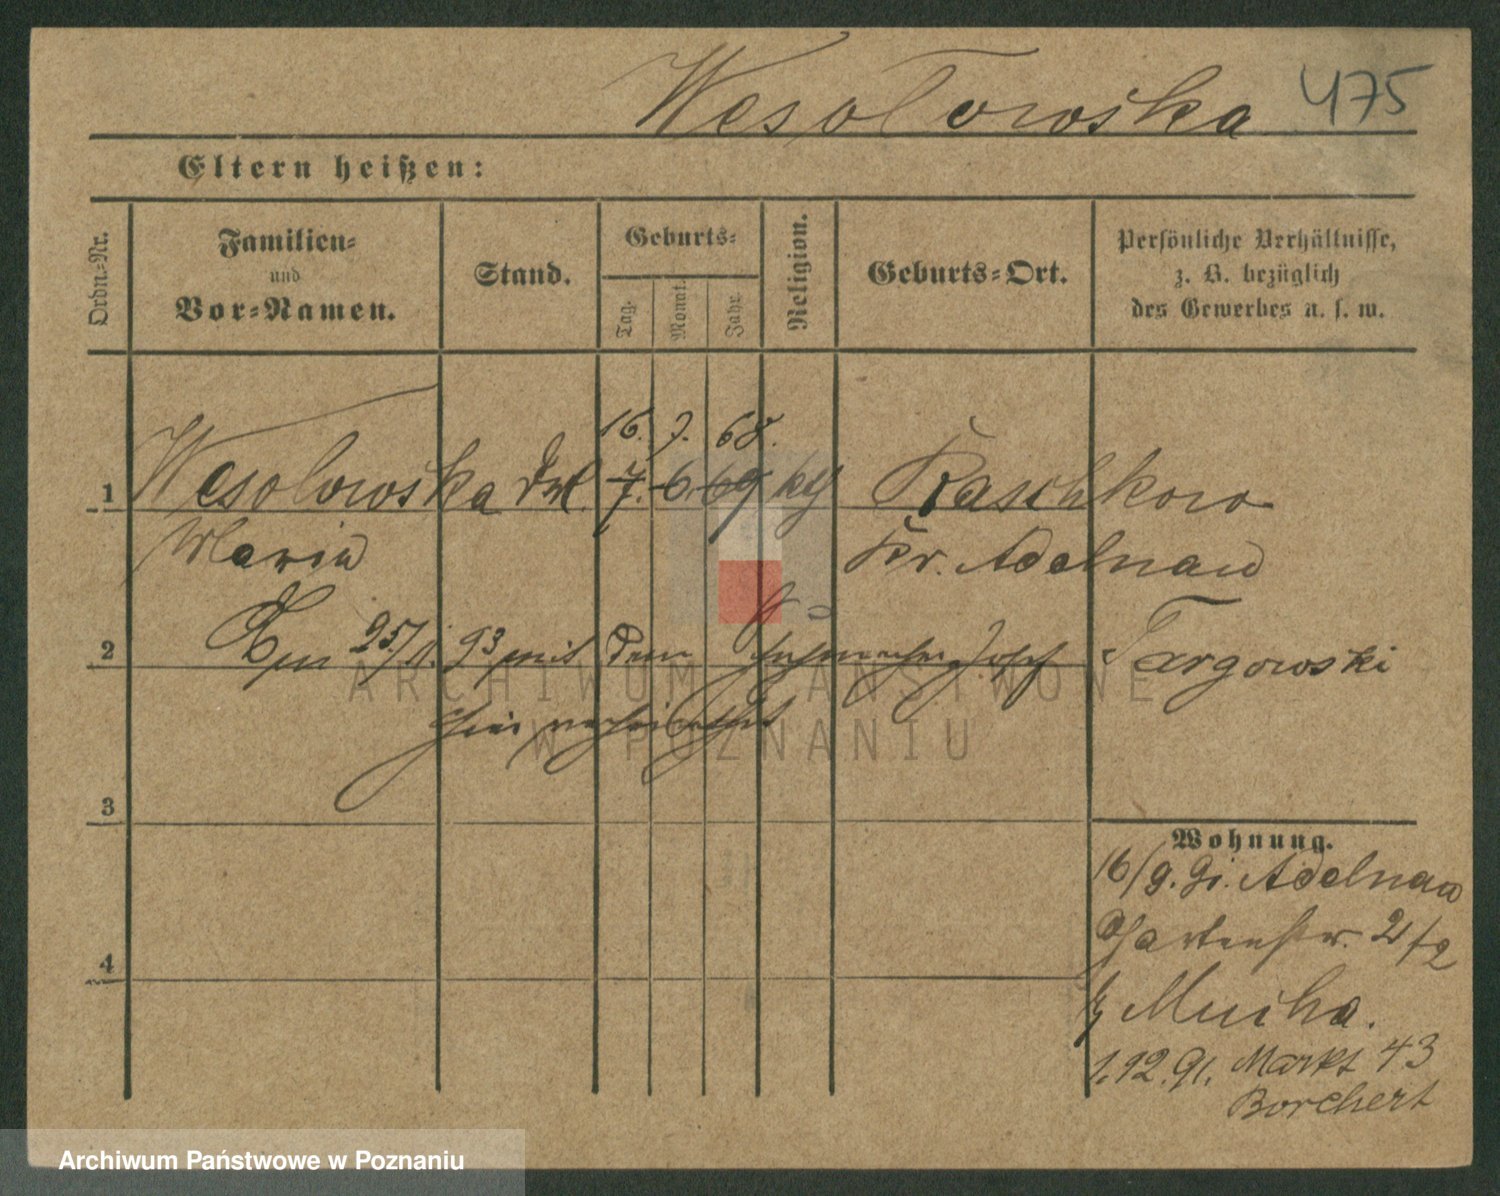 Wesolowska 475
Eltern heißen:
Ordn.-Nr.
Familien-
und
Vor-Namen.
Stand.
Geburts-
Tag.
Monat.
Jahr.
Religion.
Geburts-Ort.
Persönliche Verhältnisse,
z. B. bezüglich
des Gewerbes u. s. w.
16. 68.
1 Wesolowska 7. 6. 69 Raschkow
Maria Kr. Adelnau
2 Am 25/11. 93 mit dem Josef Targowski
hier verheirathet
3
Wohnung.
16/9. 91. Adelnau
Gartenstr. 21/2
4
b/ Mucha.
1.12.91. Markt 43
Borchert
ARCHIWUM PAŃSTWOWE
W POZNANIU
Archiwum Państwowe w Poznaniu